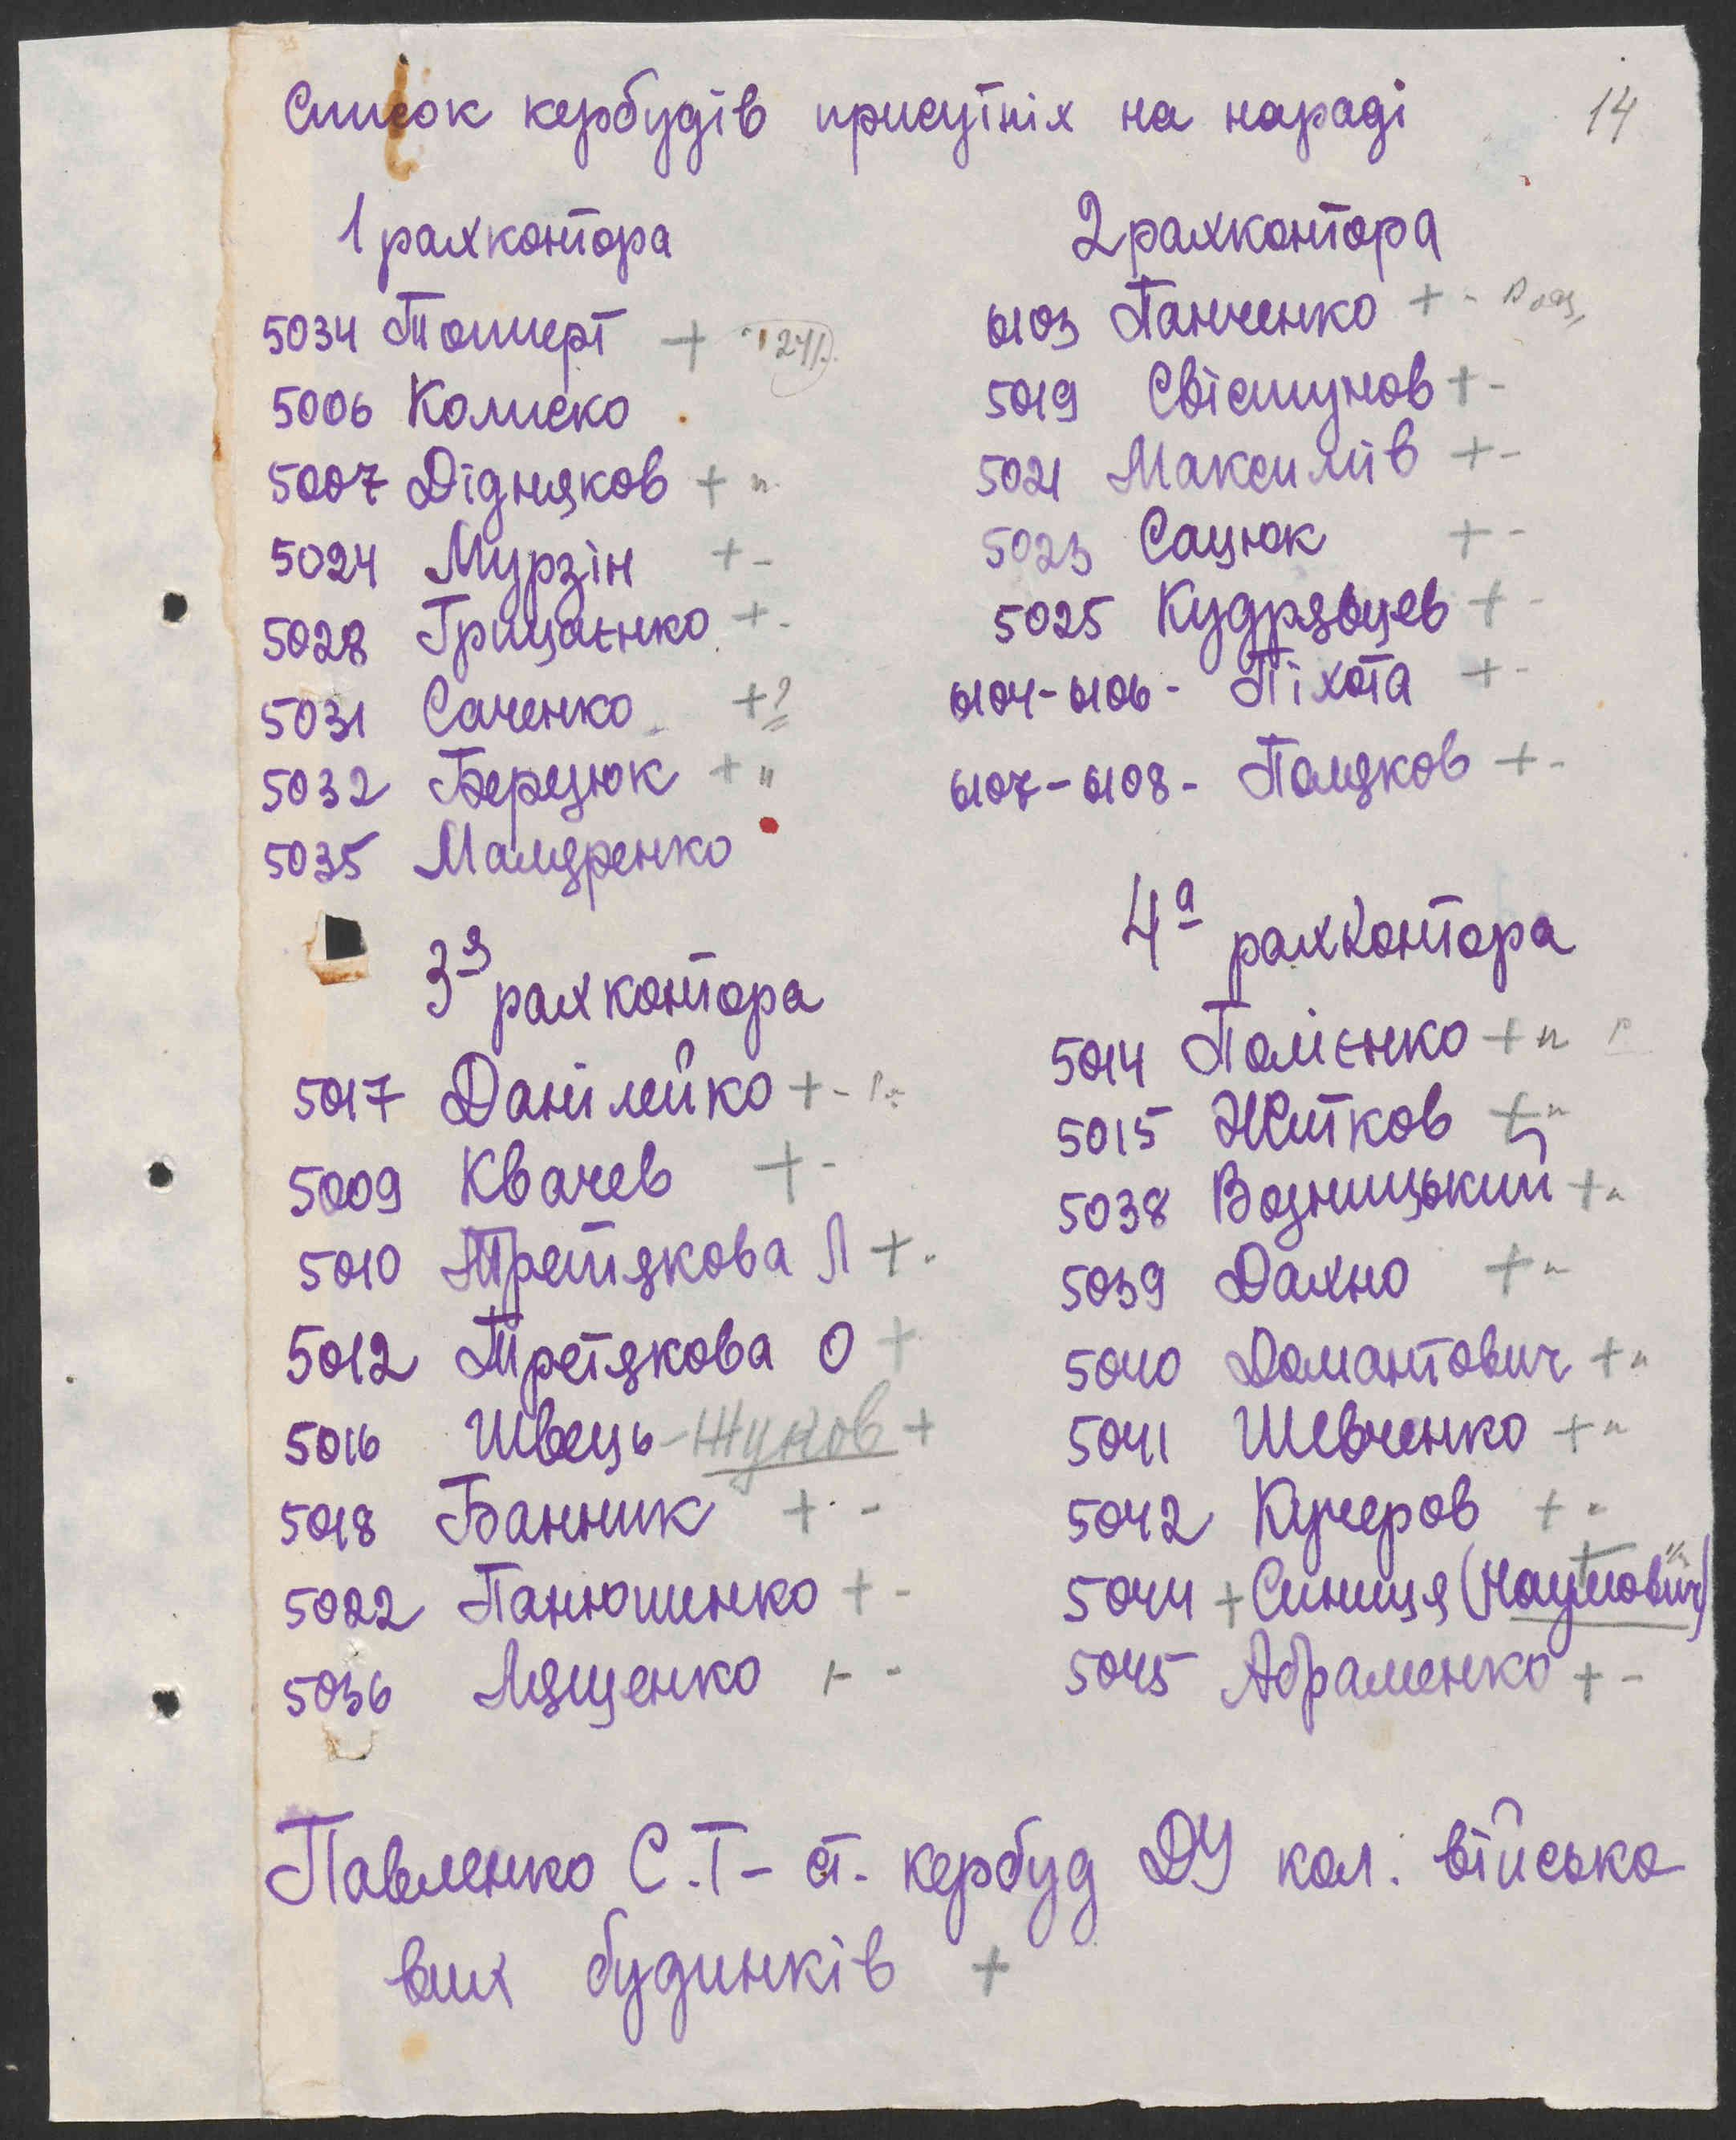 14
Список кербудів присутніх на нараді
1 рахконтора
5034 Топперт +
5006 Колиско
5007 Дідняков + "
5024 Мурзін + -
5028 Грицаєнко + -
5031 Саченко +?
5032 Берецюк + "
5035 Маляренко
2 рахконтора
6103 Панченко + -
5019 Свістунов + -
5021 Максимів + -
5023 Сацюк + -
5025 Кудрявцев + -
6104-6106- Піхота + -
6107-6108- Поляков + -
3я рахконтора
5017 Данілейко + -
5009 Квачев + -
5010 Третякова Л + "
5012 Третякова О +
5016 Швець - Жуков +
5018 Банник + -
5022 Панюшинко + -
5036 Лященко + -
4а рахконтора
5014 Полієнко + "
5015 Житков + "
5038 Возницький + "
5039 Дахно + "
5040 Домантович + "
5041 Шевченко + "
5042 Кучеров + "
5044 + Синиця (Наумович) + "
5045 Абраменко + -
Павленко С.Т - ст. кербуд ДУ кол. військо
вих будинків +